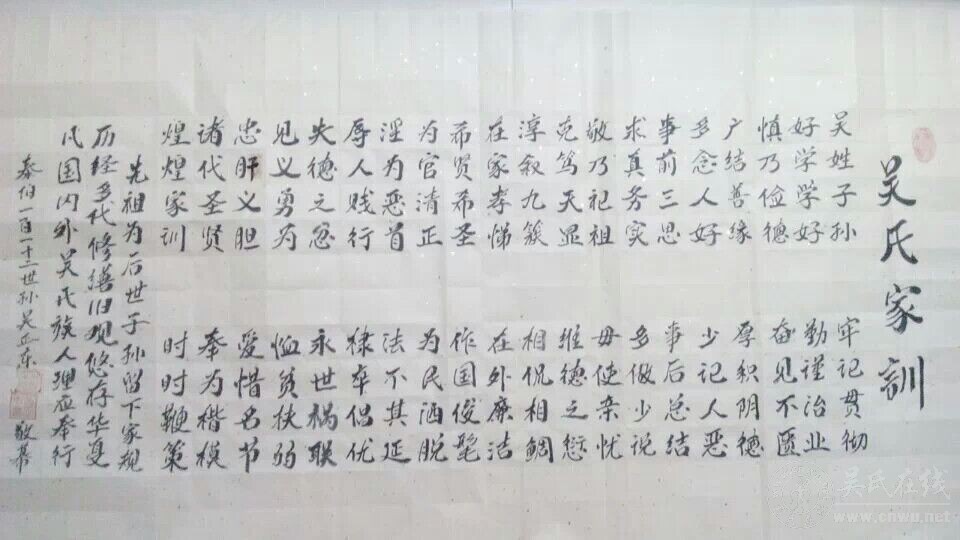 吴氏家訓
吴姓子孙 牢记贯彻
好学学好 勤谨治业
慎乃俭德 奋见不匮
广结善缘 厚积阴德
多念人好 少记人恶
事前三思 事后总结
求真务实 多做少说
敬乃祀祖 毋使亲忧
克笃天显 维德之愆
淳叙九簇 相侃相鲷
在家孝悌 在外廉洁
希贤希圣 作国俊髦
为官清正 为民洒脱
淫为恶首 法不其延
辱人贱行 隶卒倡优
失德之忿 永世祸联
见义勇为 恤贫扶弱
忠肝义胆 爱惜名节
诸代圣贤 奉为楷模
煌煌家训 时时鞭策
先祖为后世子孙留下家规
历经多代修缮旧观悠存华夏
民国内外吴氏族人理应奉行
泰伯一百一十二世孙吴正东 敬
吴氏在线
www.cnwu.net